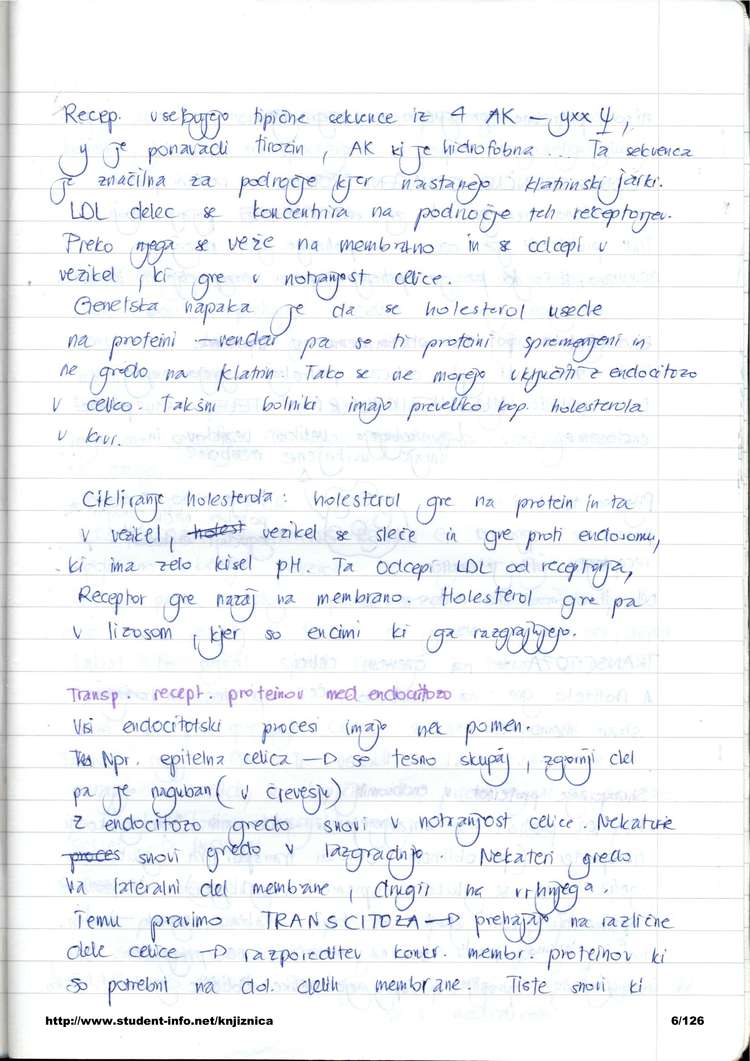 Recep. vsebujejo tipične sekvence iz 4 AK – yxx ψ,
y je ponavadi tirozin, AK ki je hidrofobna ... Ta sekvenca
je značilna za področje kjer nastanejo klatrinski jarki.
LDL delec se koncentrira na področje teh receptorjev.
Preko njega se veže na membrano in se odcepi v
vezikel, ki gre v notranjost celice.
Genetska napaka je da se holesterol usede
na proteini – vendar pa so ti proteini spremenjeni in
ne gredo na klatrin. Tako se ne morejo vključiti z endocitozo
v celico. Takšni bolniki imajo preveliko kop. holesterola
v krvi.
Cikliranje holesterola: holesterol gre na protein in ta
v vezikel, holest vezikel se sleče in gre proti endosomu,
ki ima zelo kisel pH. Ta odcepi LDL od receptorja,
Receptor gre nazaj na membrano. Holesterol gre pa
v lizosom, kjer so encimi ki ga razgrajujejo.
Transp. recept. proteinov med endocitozo
Vsi endocitotski procesi imajo nek pomen.
Npr. epitelna celica → so tesno skupaj, zgornji del
pa je naguban (v črevesju)
z endocitozo gredo snovi v notranjost celice. Nekatere
proces snovi gredo v razgradnjo. Nekateri gredo
na lateralni del membrane, drugi na vrhnjega.
Temu pravimo TRANSCITOZA → prehajajo na različne
dele celice → razporeditev konkr. membr. proteinov ki
so potrebni na dol. delih membrane. Tiste snovi ki
http://www.student-info.net/knjiznica 6/126